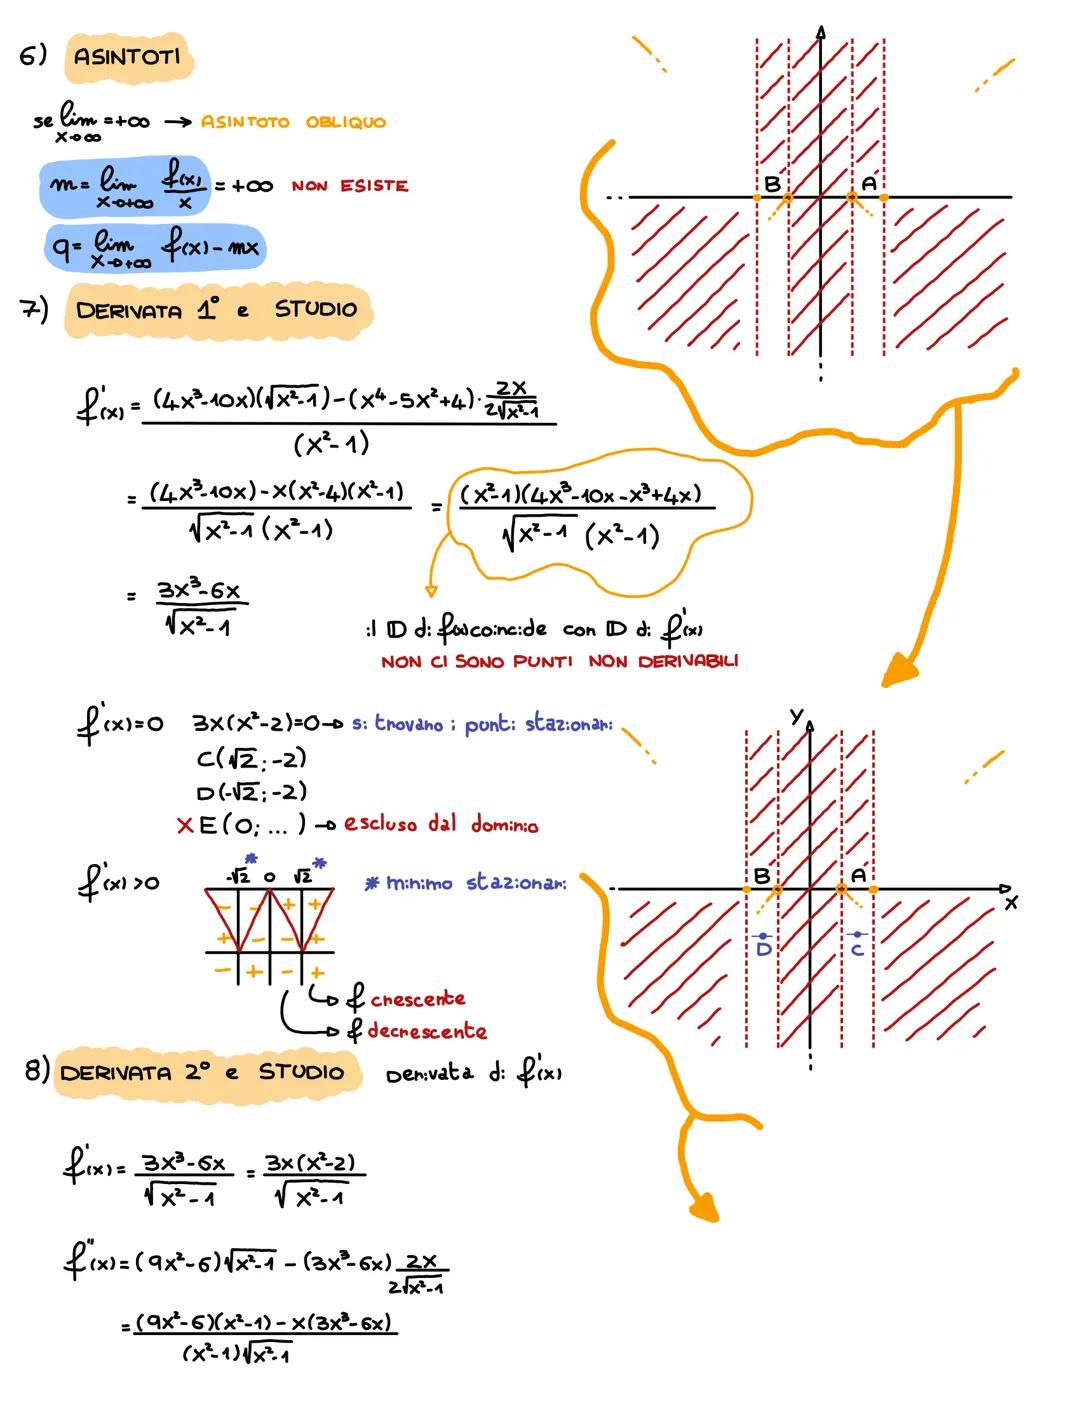 6) ASINTOTI
se lim = +∞ → ASINTOTO OBLIQUO
x→∞
m = lim f(x)/x = +∞ NON ESISTE
x→+∞
q = lim f(x) - mx
x→+∞
B A
7) DERIVATA 1° e STUDIO
f'(x) = (4x³-10x)(√x²-1) - (x⁴-5x²+4)· 2x/2√x²-1
(x²-1)
= (4x³-10x) - x(x²-4)(x²-1) / √x²-1 (x²-1) = (x²-1)(4x³-10x-x³+4x) / √x²-1 (x²-1)
= 3x³-6x / √x²-1
il D di f(x) coincide con D di f'(x)
NON CI SONO PUNTI NON DERIVABILI
f'(x)=0 3x(x²-2)=0 → si trovano i punti stazionari
C(√2; -2)
D(-√2; -2)
X E(0; ...) → escluso dal dominio
f'(x) >0 -√2 * 0 √2 * * minimo stazionari
- + +
+ - - +
- + - +
→ f crescente
→ f decrescente
y
B A
x
D C
8) DERIVATA 2° e STUDIO Derivata di f'(x)
f'(x) = 3x³-6x / √x²-1 = 3x(x²-2) / √x²-1
f''(x) = (9x²-6)√x²-1 - (3x³-6x) 2x/2√x²-1
= (9x²-6)(x²-1) - x(3x³-6x) / (x²-1)√x²-1